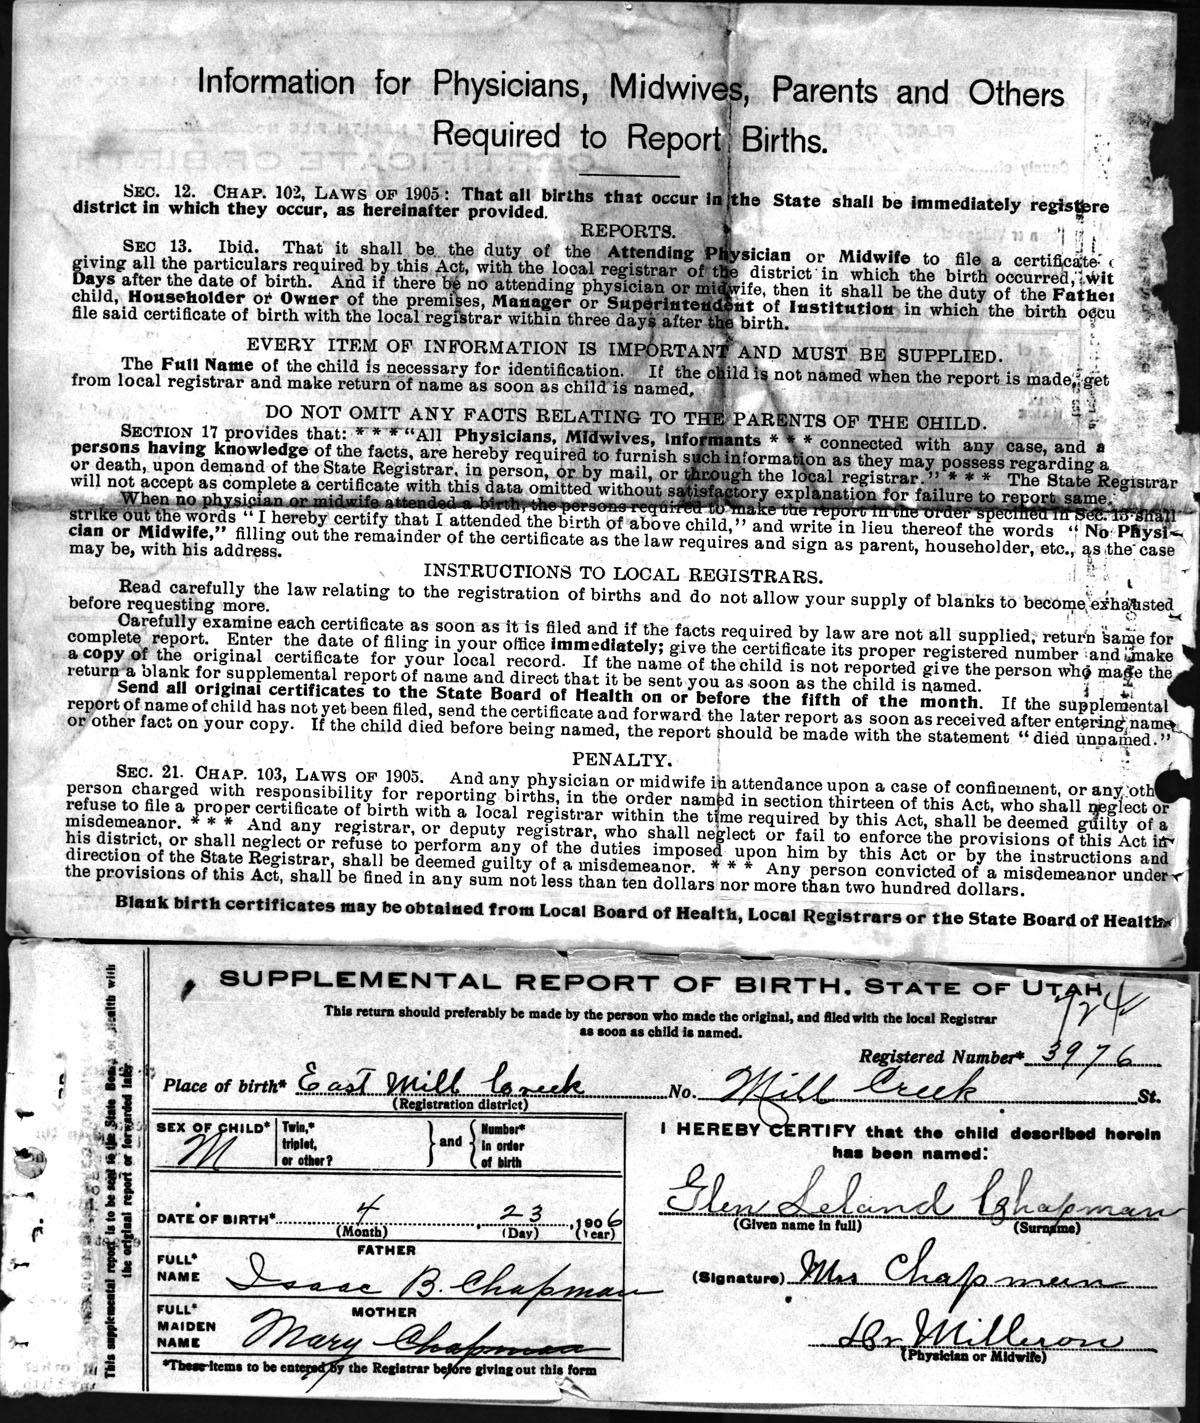 Information for Physicians, Midwives, Parents and Others
Required to Report Births.
SEC. 12. CHAP. 102, LAWS OF 1905: That all births that occur in the State shall be immediately registere
district in which they occur, as hereinafter provided.
REPORTS.
SEC 13. Ibid. That it shall be the duty of the Attending Physician or Midwife to file a certificate
giving all the particulars required by this Act, with the local registrar of the district in which the birth occurred, wit
Days after the date of birth. And if there be no attending physician or midwife, then it shall be the duty of the Father
child, Householder or Owner of the premises, Manager or Superintendent of Institution in which the birth occu
file said certificate of birth with the local registrar within three days after the birth.
EVERY ITEM OF INFORMATION IS IMPORTANT AND MUST BE SUPPLIED.
The Full Name of the child is necessary for identification. If the child is not named when the report is made, get
from local registrar and make return of name as soon as child is named,
DO NOT OMIT ANY FACTS RELATING TO THE PARENTS OF THE CHILD.
SECTION 17 provides that: * * * "All Physicians, Midwives, Informants * * * connected with any case, and a
persons having knowledge of the facts, are hereby required to furnish such information as they may possess regarding a
or death, upon demand of the State Registrar. in person, or by mail, or through the local registrar." * * * The State Registrar
will not accept as complete a certificate with this data omitted without satisfactory explanation for failure to report same.
When no physician or midwife attended a birth, the persons required to make the report in the order specified in Sec. 13 shall
strike out the words "I hereby certify that I attended the birth of above child," and write in lieu thereof the words "No Physi-
cian or Midwife," filling out the remainder of the certificate as the law requires and sign as parent, householder, etc., as the case
may be, with his address.
INSTRUCTIONS TO LOCAL REGISTRARS.
Read carefully the law relating to the registration of births and do not allow your supply of blanks to become exhausted
before requesting more.
Carefully examine each certificate as soon as it is filed and if the facts required by law are not all supplied, return same for
complete report. Enter the date of filing in your office immediately; give the certificate its proper registered number and make
a copy of the original certificate for your local record. If the name of the child is not reported give the person who made the
return a blank for supplemental report of name and direct that it be sent you as soon as the child is named.
Send all original certificates to the State Board of Health on or before the fifth of the month. If the supplemental
report of name of child has not yet been filed, send the certificate and forward the later report as soon as received after entering name
or other fact on your copy. If the child died before being named, the report should be made with the statement "died unnamed."
PENALTY.
SEC. 21. CHAP. 103, LAWS OF 1905. And any physician or midwife in attendance upon a case of confinement, or any othe
person charged with responsibility for reporting births, in the order named in section thirteen of this Act, who shall neglect or
refuse to file a proper certificate of birth with a local registrar within the time required by this Act, shall be deemed guilty of a
misdemeanor. * * * And any registrar, or deputy registrar, who shall neglect or fail to enforce the provisions of this Act in
his district, or shall neglect or refuse to perform any of the duties imposed upon him by this Act or by the instructions and
direction of the State Registrar, shall be deemed guilty of a misdemeanor. * * * Any person convicted of a misdemeanor under
the provisions of this Act, shall be fined in any sum not less than ten dollars nor more than two hundred dollars.
Blank birth certificates may be obtained from Local Board of Health, Local Registrars or the State Board of Health
This supplemental report to be sent to the State Boa Health with
the original report or forwarded later
SUPPLEMENTAL REPORT OF BIRTH. STATE OF UTAH
724
This return should preferably be made by the person who made the original, and filed with the local Registrar
as soon as child is named.
Registered Number* 3976
Place of birth* East Mill Creek No. Mill Creek St.
(Registration district)
SEX OF CHILD* M Twin,* triplet, or other? and Number* in order of birth
I HEREBY CERTIFY that the child described herein
has been named:
Glen Leland Chapman
(Given name in full) (Surname)
DATE OF BIRTH* 4 23, 1906
(Month) (Day) (Year)
FATHER
FULL* NAME Isaac B. Chapman
(Signature) Mrs Chapman
MOTHER
FULL* MAIDEN NAME Mary Chapman
Dr Milleron
(Physician or Midwife)
*These items to be entered by the Registrar before giving out this form